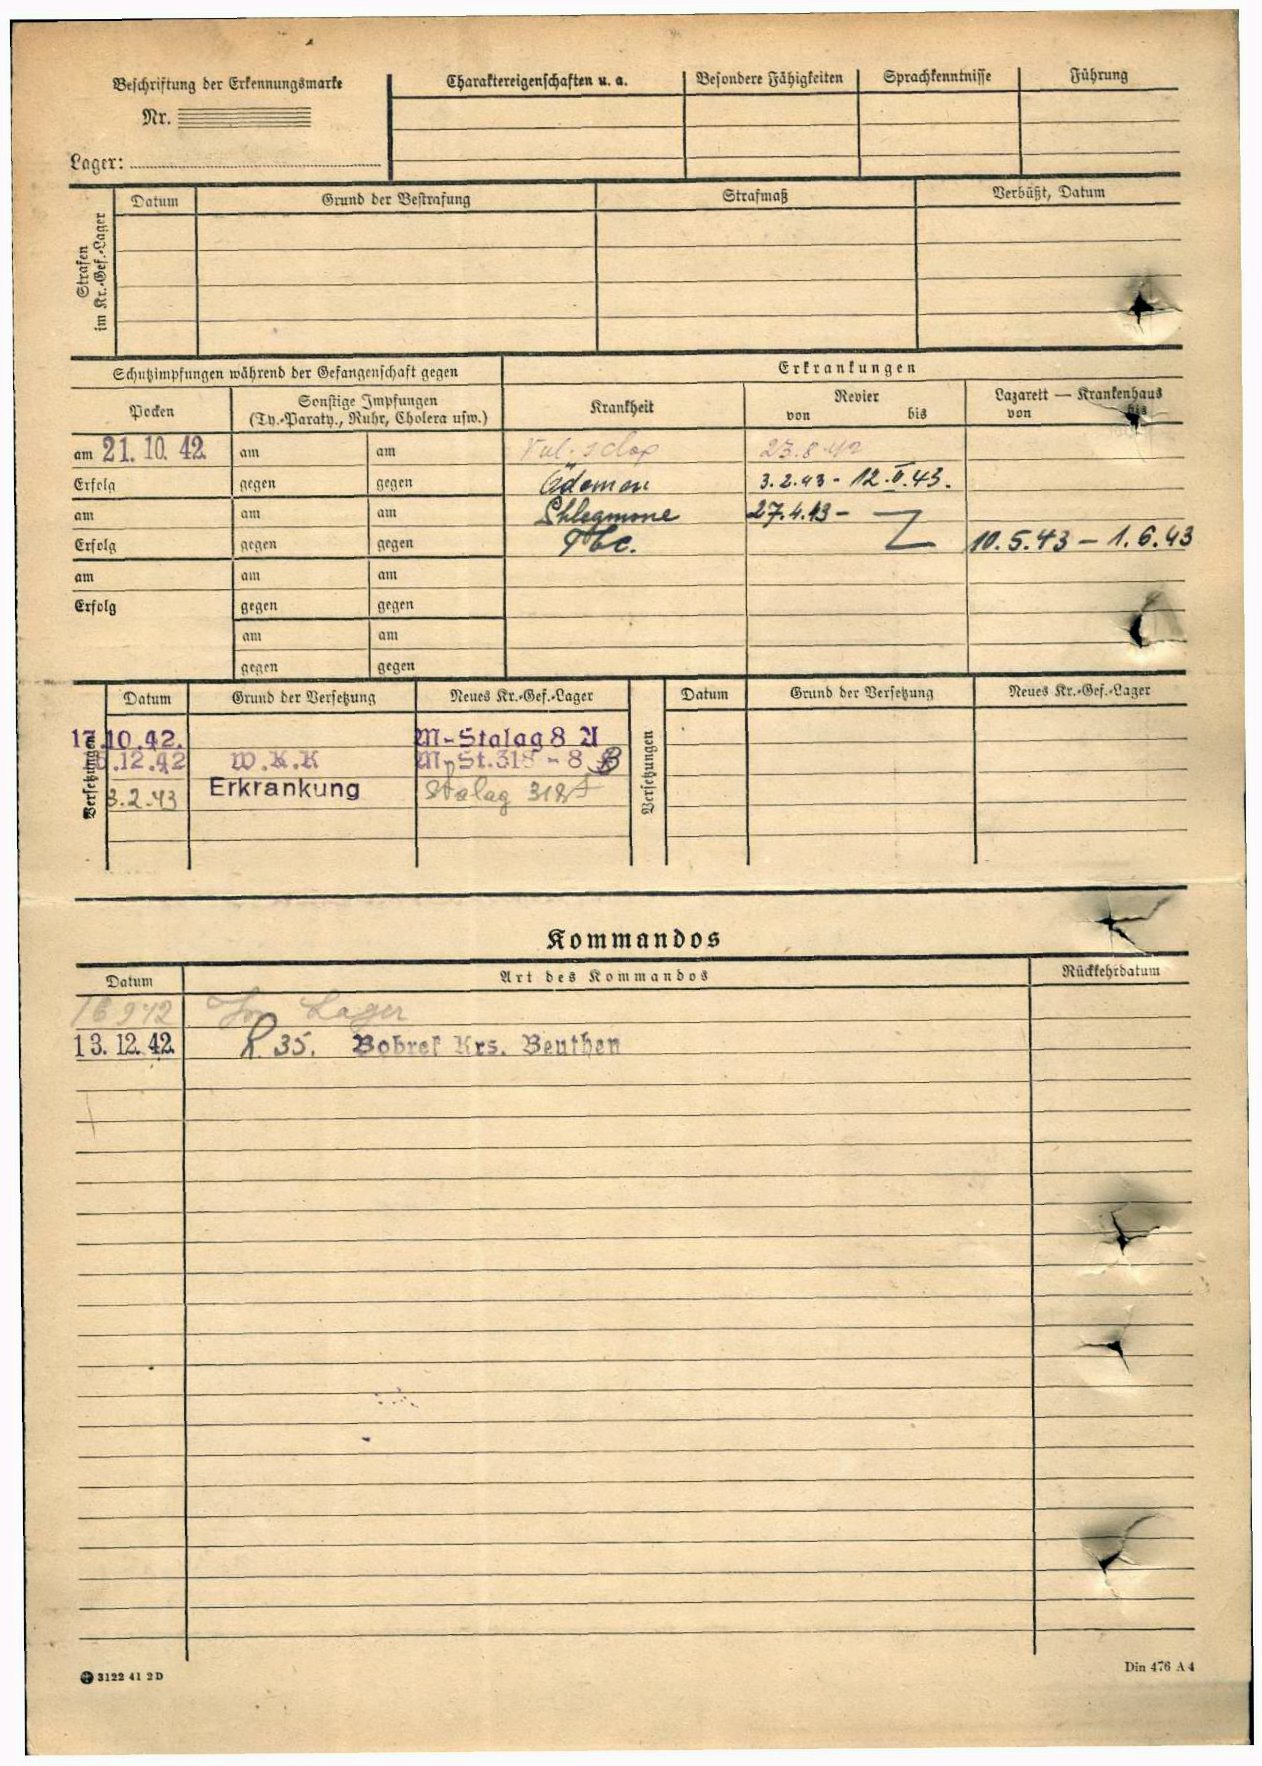 Beschriftung der Erkennungsmarke
Nr.
Lager:
Charaktereigenschaften u. a.
Besondere Fähigkeiten
Sprachkenntnisse
Führung
Strafen
im Kr.-Gef.-Lager
Datum
Grund der Bestrafung
Strafmaß
Verbüßt, Datum
Schutzimpfungen während der Gefangenschaft gegen
Erkrankungen
Pocken
Sonstige Impfungen
(Ty.-Paraty., Ruhr, Cholera usw.)
Krankheit
Revier
von bis
Lazarett — Krankenhaus
von bis
am 21. 10. 42. am am 23.8.42
Erfolg gegen gegen Ödemen 3.2.43 - 12.II.43.
am am am Phlegmone 27.4.43 -
Erfolg gegen gegen Tbc. 10.5.43 - 1.6.43
am am am
Erfolg gegen gegen
am am
gegen gegen
Versetzungen
Datum Grund der Versetzung Neues Kr.-Gef.-Lager
10.42. M-Stalag 8 A
.12.42 W.K.K M-St. 318 - 8 B
3.2.43 Erkrankung Stalag 318
Versetzungen
Datum Grund der Versetzung Neues Kr.-Gef.-Lager
Kommandos
Datum Art des Kommandos Rückkehrdatum
16 9 42 Lager
13. 12. 42. R. 35. Bobrek Krs. Beuthen
3122 41 2 D
Din 476 A 4